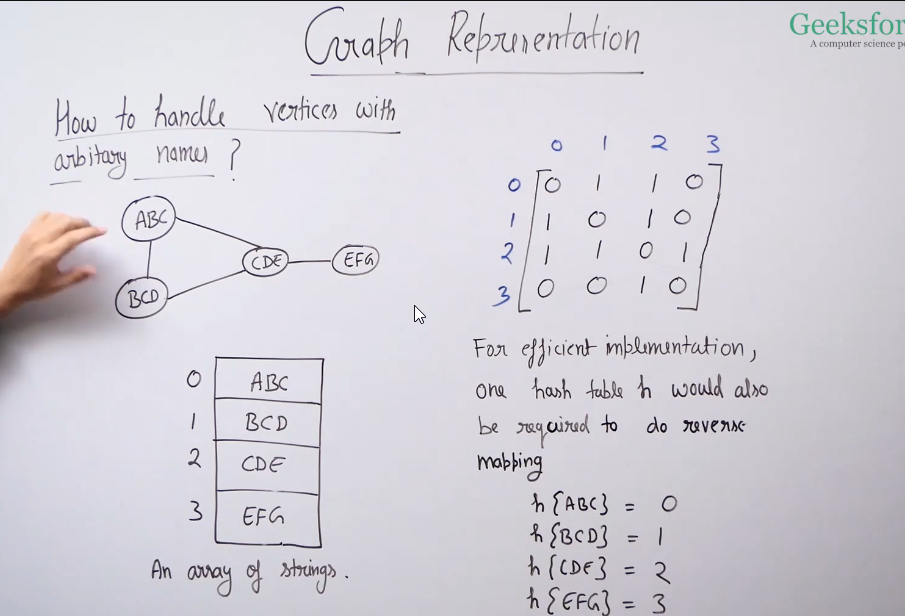 Graph Representation
Geeksfor
A computer science po
How to handle vertices with
arbitary names ?
ABC
CDE
EFG
BCD
0 1 2 3
0 0 1 1 0
1 1 0 1 0
2 1 1 0 1
3 0 0 1 0
0 ABC
1 BCD
2 CDE
3 EFG
An array of strings.
For efficient implementation,
one hash table h would also
be required to do reverse
mapping
h{ABC} = 0
h{BCD} = 1
h{CDE} = 2
h{EFG} = 3